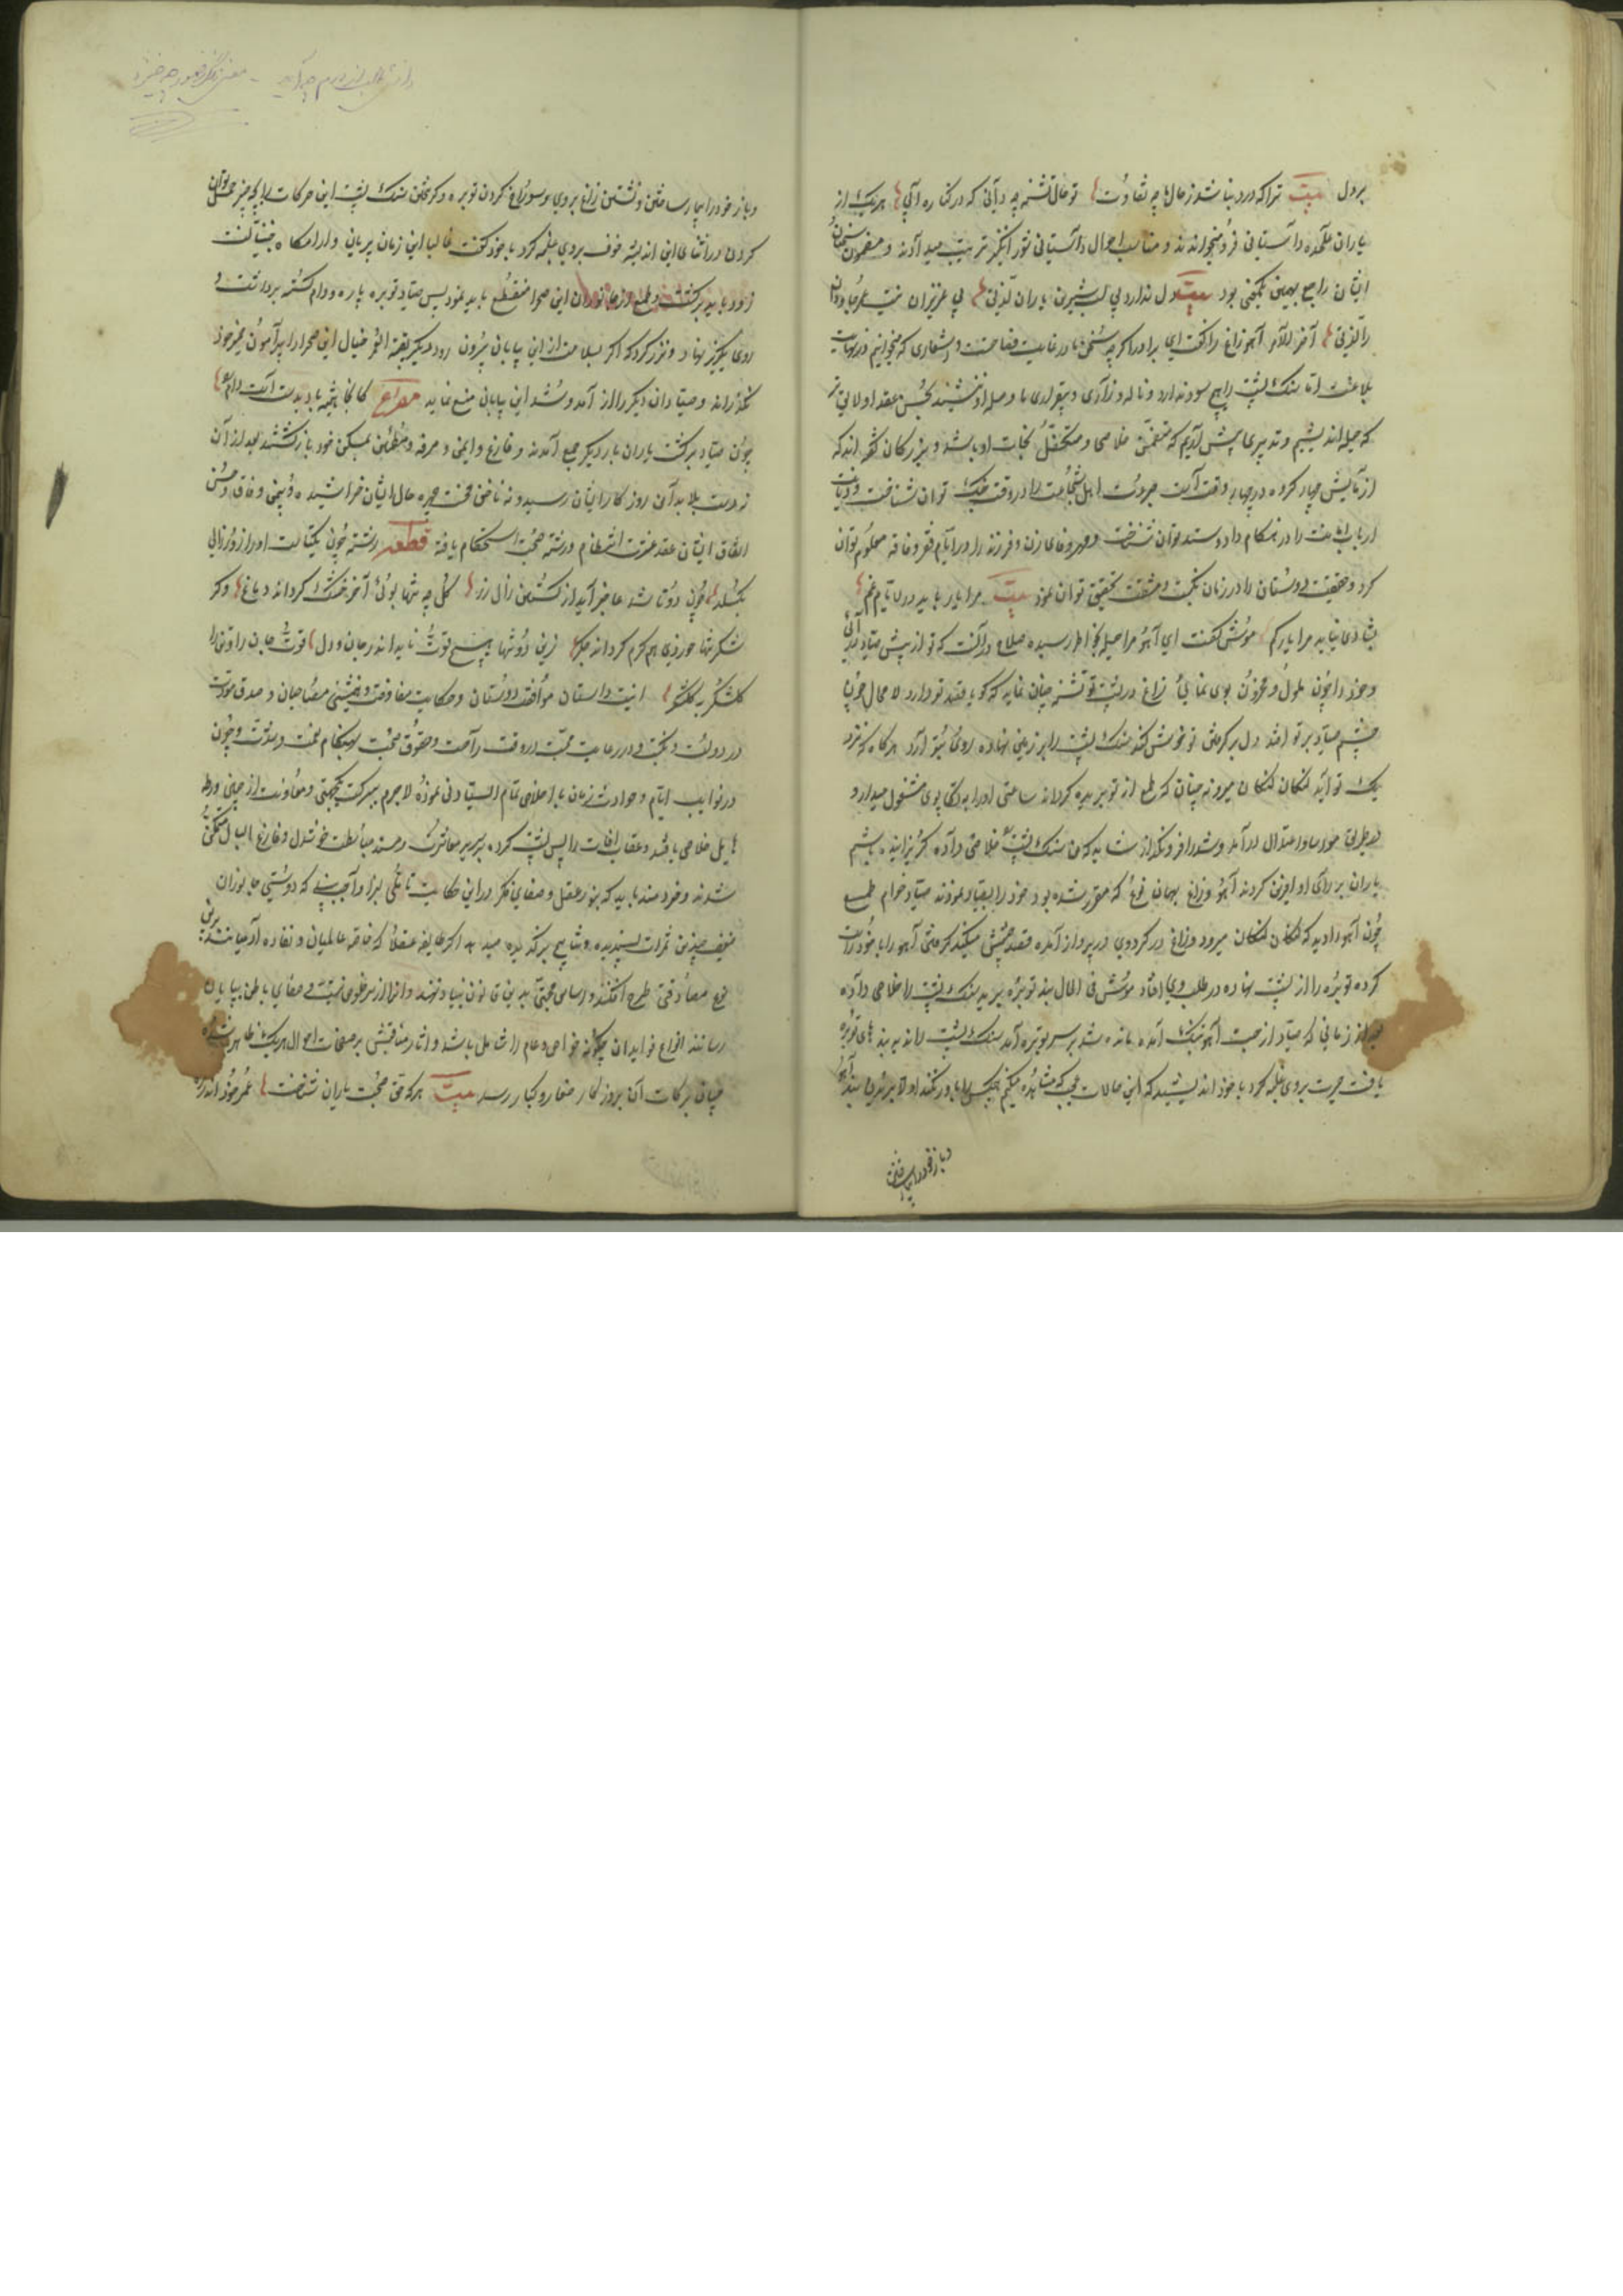 بردل بیت ترا که درد نباشد ز حال ما چه تفاوت تو حال تشنه چه دانی که در کناره آبی هر یک از
یاران علیحده داستانی فرو میخواندند و مناسب احوال داستانی شور انگیز ترتیب میدادند و مضمون سخنان
ایشان راجع بهمین نکته بود بیت دل ندارد بی لب شیرین یاران لذتی بی عزیزان نیست عمر جاودان
را لذتی آخر الامر آهو زاغ را گفت ای برادر اگر چه سخن ما در غایت فصاحتست و اشعاری که میخوانیم در نهایت
بلاغت اما سنگ پشت را هیچ سود ندارد و ناله و زاری و بیقراری ما در حوصله او ننشیند بحسن عهد اولی تر
که حیله اندیشیم و تدبیری پیش آریم که متضمن خلاصی و متکفل نجات او باشد و بزرگان گفته اند که
آزمایش چهار گروه در چهار وقت است جرات اهل شجاعت را در وقت جنگ توان شناخت و دیانت
ارباب امانت را در هنگام داد و ستد توان شناخت و مهر و وفای زن و فرزند را در ایام فقر و فاقه معلوم توان
کرد و حقیقت دوستان را در زمان نکبت و مشقت تحقیق توان نمود بیت مرا یار باید در ایام غم
بشادی نیاید مرا یار کم موش گفت ای آهو مرا حیله بخاطر رسیده صلاح در آنست که تو از پیش صیاد در آئی
و خود را چون ملول و مجروح بوی نمائی و زاغ بر پشت تو نشسته چنان نماید که گویا قصد تو دارد لا محال چون
چشم صیاد بر تو افتد دل بر گرفتن تو خوش کند سنگ پشت را بر زمین نهاده روی بتو آرد هر گاه که نزد
یک تو آید لنگان لنگان میرو نه چنان که طمع از تو ببریده گرداند ساعتی او را به تکاپوی مشغول میدار و
طریق اعتدال در آمد و شد فرو مگذار شاید که من سنگ پشت را خلاصی داده گریزانیده باشم
یاران بر رای او آفرین کردند آهو و زاغ بهمان نوع که مقرر شده بود خود را بصیاد نمودند صیاد خام طمع
چون آهو را دید که لنگان لنگان میرود و زاغ در گرد وی در پرواز آمده قصد چشمش میکند گرفتن آهو را با خود راست
کرده توبره را از پشت نهاده در طلب وی افتاد موش فی الحال بند توبره ببرید سنگ پشت را خلاصی داده
بعد از زمانی که صیاد از جست آهو بتنگ آمده مانده شد بر سر توبره آمد سنگ پشت را ندید بند های توبره
یافت حیرت بروی غلبه کرد با خود اندیشید که این حالات عجب که مشاهده میکنم هیچ کس باور نکند اولا بریدن بند آهو
و باز خود را بیمار ساختن
و باز خود را بیمار ساختن و نشستن زاغ بروی و سوراغ کردن توبره و گریختن سنگ پشت این حرکات را بچه چیز حمل توان
کردن در اثنای این اندیشه خوف بروی غلبه کرد با خود گفت غالبا این زمان پریان و آرامگاه جنیانست
زود باید برگشت و طمع از جانوران این صحرا منقطع باید نمود پس صیاد توبره پاره و دام گسسته برداشت و
روی بگریز نهاد و نذر کرد که اگر بسلامت از این بیابان بیرون رود دیگر بقیة العمر خیال این صحرا را پیرامون ضمیر خود
نگذراند و صیادان دیگر را از آمد و شد این بیابان منع نماید مصراع کانجا همیشه باد بدست است دام را
چون صیاد برگشت یاران بار دیگر جمع آمدند و فارغ و ایمن و مرفه و مطمئن بمسکن خود بازگشتند بعد از آن
نه دست بلا بدامن روزگار ایشان رسید و نه ناخن محنت چهره حال ایشان خراشید و بیمن وفاق و حسن
اتفاق ایشان عقد عشرت انتظام و رشته صحبت استحکام یافته قطعه رشته چون یکتاست او را زور زالی
بگسلد چون دو تا شد عاجز آید از گسستن زال زر گل چه تنها بوئی آخر خشک گرداند دماغ و گر
شکر تنها خوردی هم گرم گرداند جگر زین دو تنها هیچ قوت ناید اندر جان و دل قوت جان را قوتی از
گلشکر به گلشکر اینست داستان موافقت دوستان و حکایت معاونت و همنشینی مصاحبان و صدق مودت
در دولت و نکبت و در رعایت محبت در وقت راحت و حقوق صحبت بهنگام نعمت و مشقت و چون
در نوایب ایام و حوادث زمان با اخلاص تمام ایستادگی نموده لاجرم ببرکت یکجهتی و معاونت از چنین ورطه
هایل خلاصی یافتند و عقبات آفات را پس پشت کرده بر سریر معاشرت و مسند مباسطت خوشدل و فارغ البال متمکن
شدند و خردمند باید که بنور عقل و صفای فکر در این حکایت تاملی بسزا واجب بیند که دوستی جانوران
ضعیف چندین ثمرات پسندیده و نتایج برگزیده میدهد اگر طایفه عقلا که خلاصه عالمیان و نقاوه آدمیانند برین
نوع مصادقتی طرح افکنند و اساس محبتی بدین قانون بنیاد نهند و آنرا از سر خلوص نیت و صفای باطن بپایان
رسانند انواع فوایدان چگونه خواص و عام را شامل باشد و آثار مناقبش بر صفحات احوال هر یک ظاهر شده
چسان برکات آن بروزگار صغار و کبار رسد بیت هر که حق صحبت یاران شناخت عمر خود اندر ره